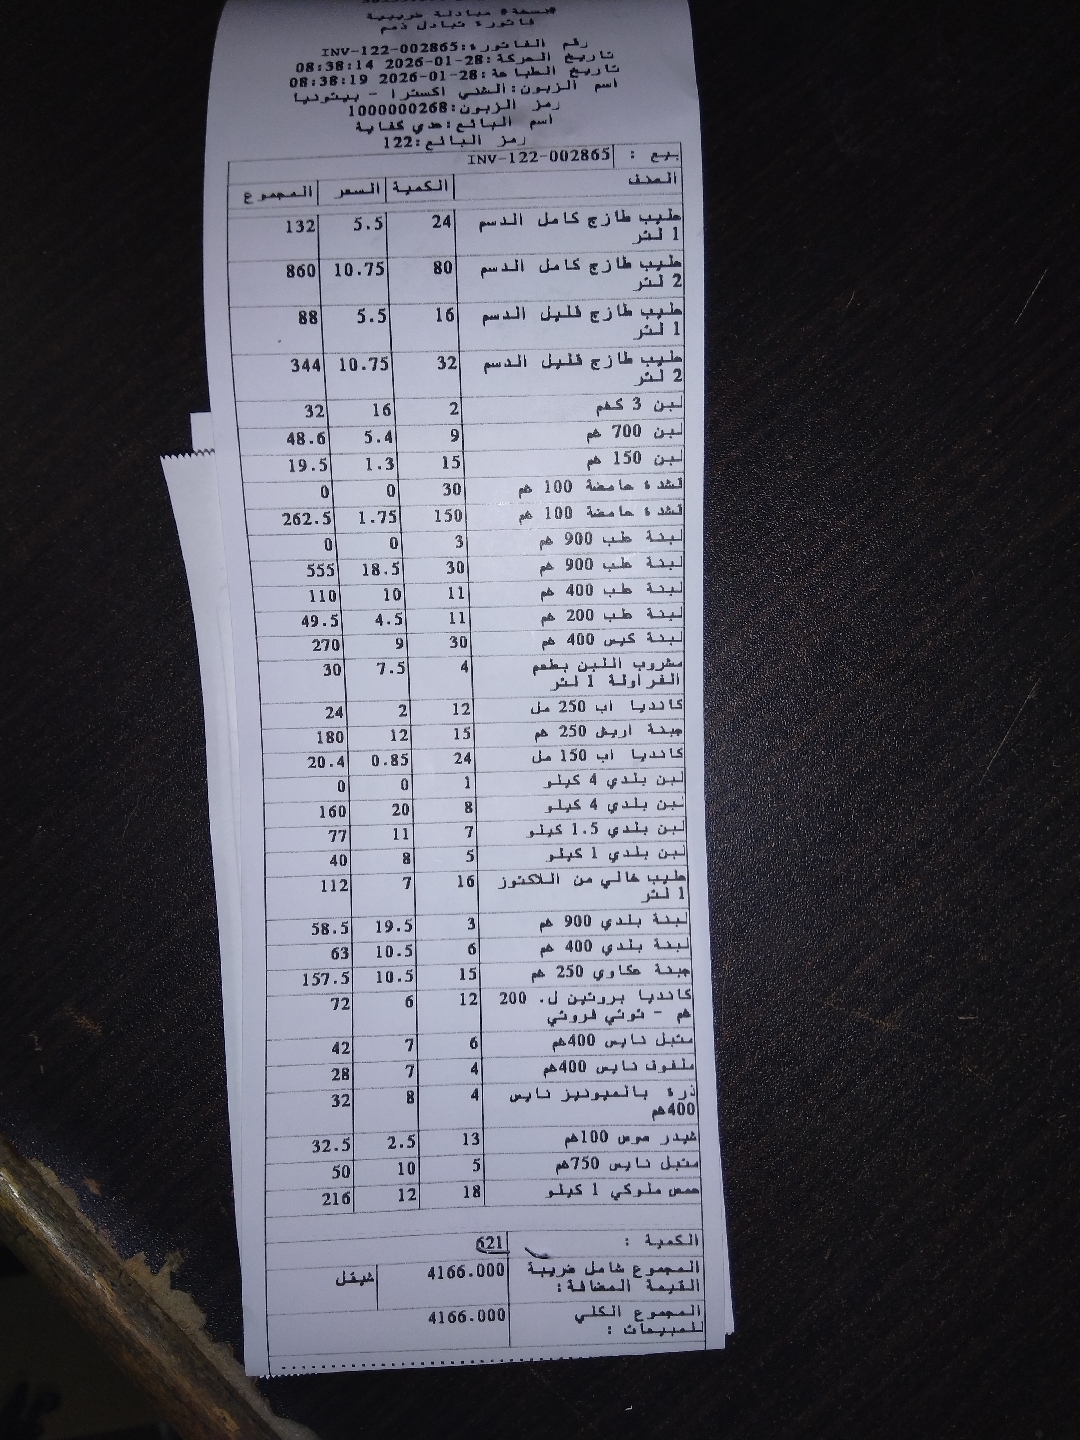 نسخة مبادلة ضريبية
فاتورة تبادل ذمم
رقم الفاتورة:INV-122-002865
تاريخ الحركة:28-01-2026 08:38:14
تاريخ الطباعة:28-01-2026 08:38:19
اسم الزبون:الشني اكسترا - بيتونيا
رمز الزبون:1000000268
اسم البائع:عدي كفاية
رمز البائع:122
بيع : INV-122-002865
الصنف الكمية السعر المجموع
حليب طازج كامل الدسم 24 5.5 132
1 لتر
حليب طازج كامل الدسم 80 10.75 860
2 لتر
حليب طازج قليل الدسم 16 5.5 88
1 لتر
حليب طازج قليل الدسم 32 10.75 344
2 لتر
لبن 3 كغم 2 16 32
لبن 700 غم 9 5.4 48.6
لبن 150 غم 15 1.3 19.5
قشدة حامضة 100 غم 30 0 0
قشدة حامضة 100 غم 150 1.75 262.5
لبنة علب 900 غم 3 0 0
لبنة علب 900 غم 30 18.5 555
لبنة علب 400 غم 11 10 110
لبنة علب 200 غم 11 4.5 49.5
لبنة كيس 400 غم 30 9 270
مشروب اللبن بطعم 4 7.5 30
الفراولة 1 لتر
كانديا اب 250 مل 12 2 24
جبنة اريش 250 غم 15 12 180
كانديا اب 150 مل 24 0.85 20.4
لبن بلدي 4 كيلو 1 0 0
لبن بلدي 4 كيلو 8 20 160
لبن بلدي 1.5 كيلو 7 11 77
لبن بلدي 1 كيلو 5 8 40
حليب خالي من اللاكتوز 16 7 112
1 لتر
لبنة بلدي 900 غم 3 19.5 58.5
لبنة بلدي 400 غم 6 10.5 63
جبنة عكاوي 250 غم 15 10.5 157.5
كانديا بروتين ل. 200 12 6 72
غم - توتي فروتي
متبل نايس 400غم 6 7 42
ملفوف نايس 400غم 4 7 28
ذرة بالميونيز نايس 4 8 32
400غم
شيدر صوص 100غم 13 2.5 32.5
متبل نايس 750غم 5 10 50
حمص ملوكي 1 كيلو 18 12 216
الكمية : 621
المجموع شامل ضريبة 4166.000 شيقل
القيمة المضافة:
المجموع الكلي 4166.000
للمبيعات :